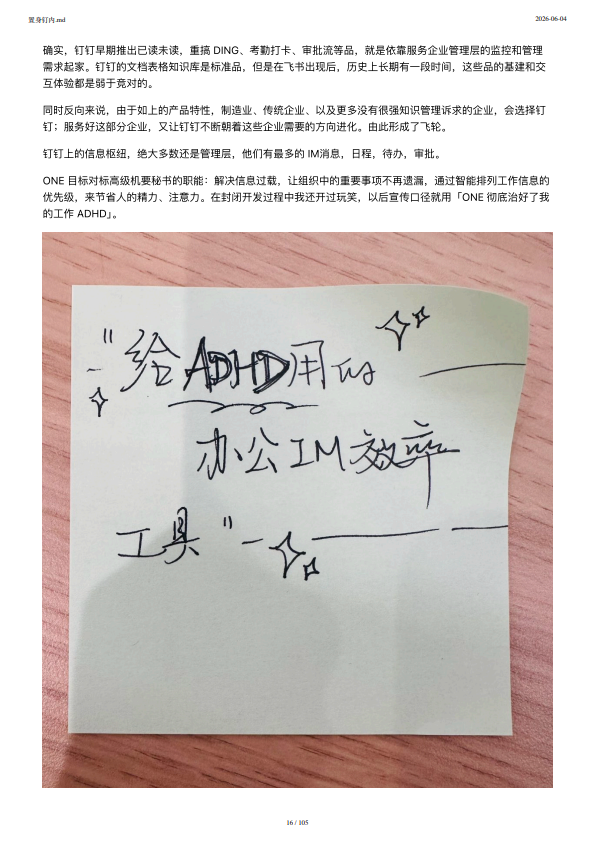 置身钉内.md 2026-06-04
确实，钉钉早期推出已读未读，重搞 DING、考勤打卡、审批流等品，就是依靠服务企业管理层的监控和管理
需求起家。钉钉的文档表格知识库是标准品，但是在飞书出现后，历史上长期有一段时间，这些品的基建和交
互体验都是弱于竞对的。
同时反向来说，由于如上的产品特性，制造业、传统企业、以及更多没有很强知识管理诉求的企业，会选择钉
钉；服务好这部分企业，又让钉钉不断朝着这些企业需要的方向进化。由此形成了飞轮。
钉钉上的信息枢纽，绝大多数还是管理层，他们有最多的 IM消息，日程，待办，审批。
ONE 目标对标高级机要秘书的职能：解决信息过载，让组织中的重要事项不再遗漏，通过智能排列工作信息的
优先级，来节省人的精力、注意力。在封闭开发过程中我还开过玩笑，以后宣传口径就用「ONE 彻底治好了我
的工作 ADHD」。
"给ADHD用的
办公IM效率
工具"
16 / 105